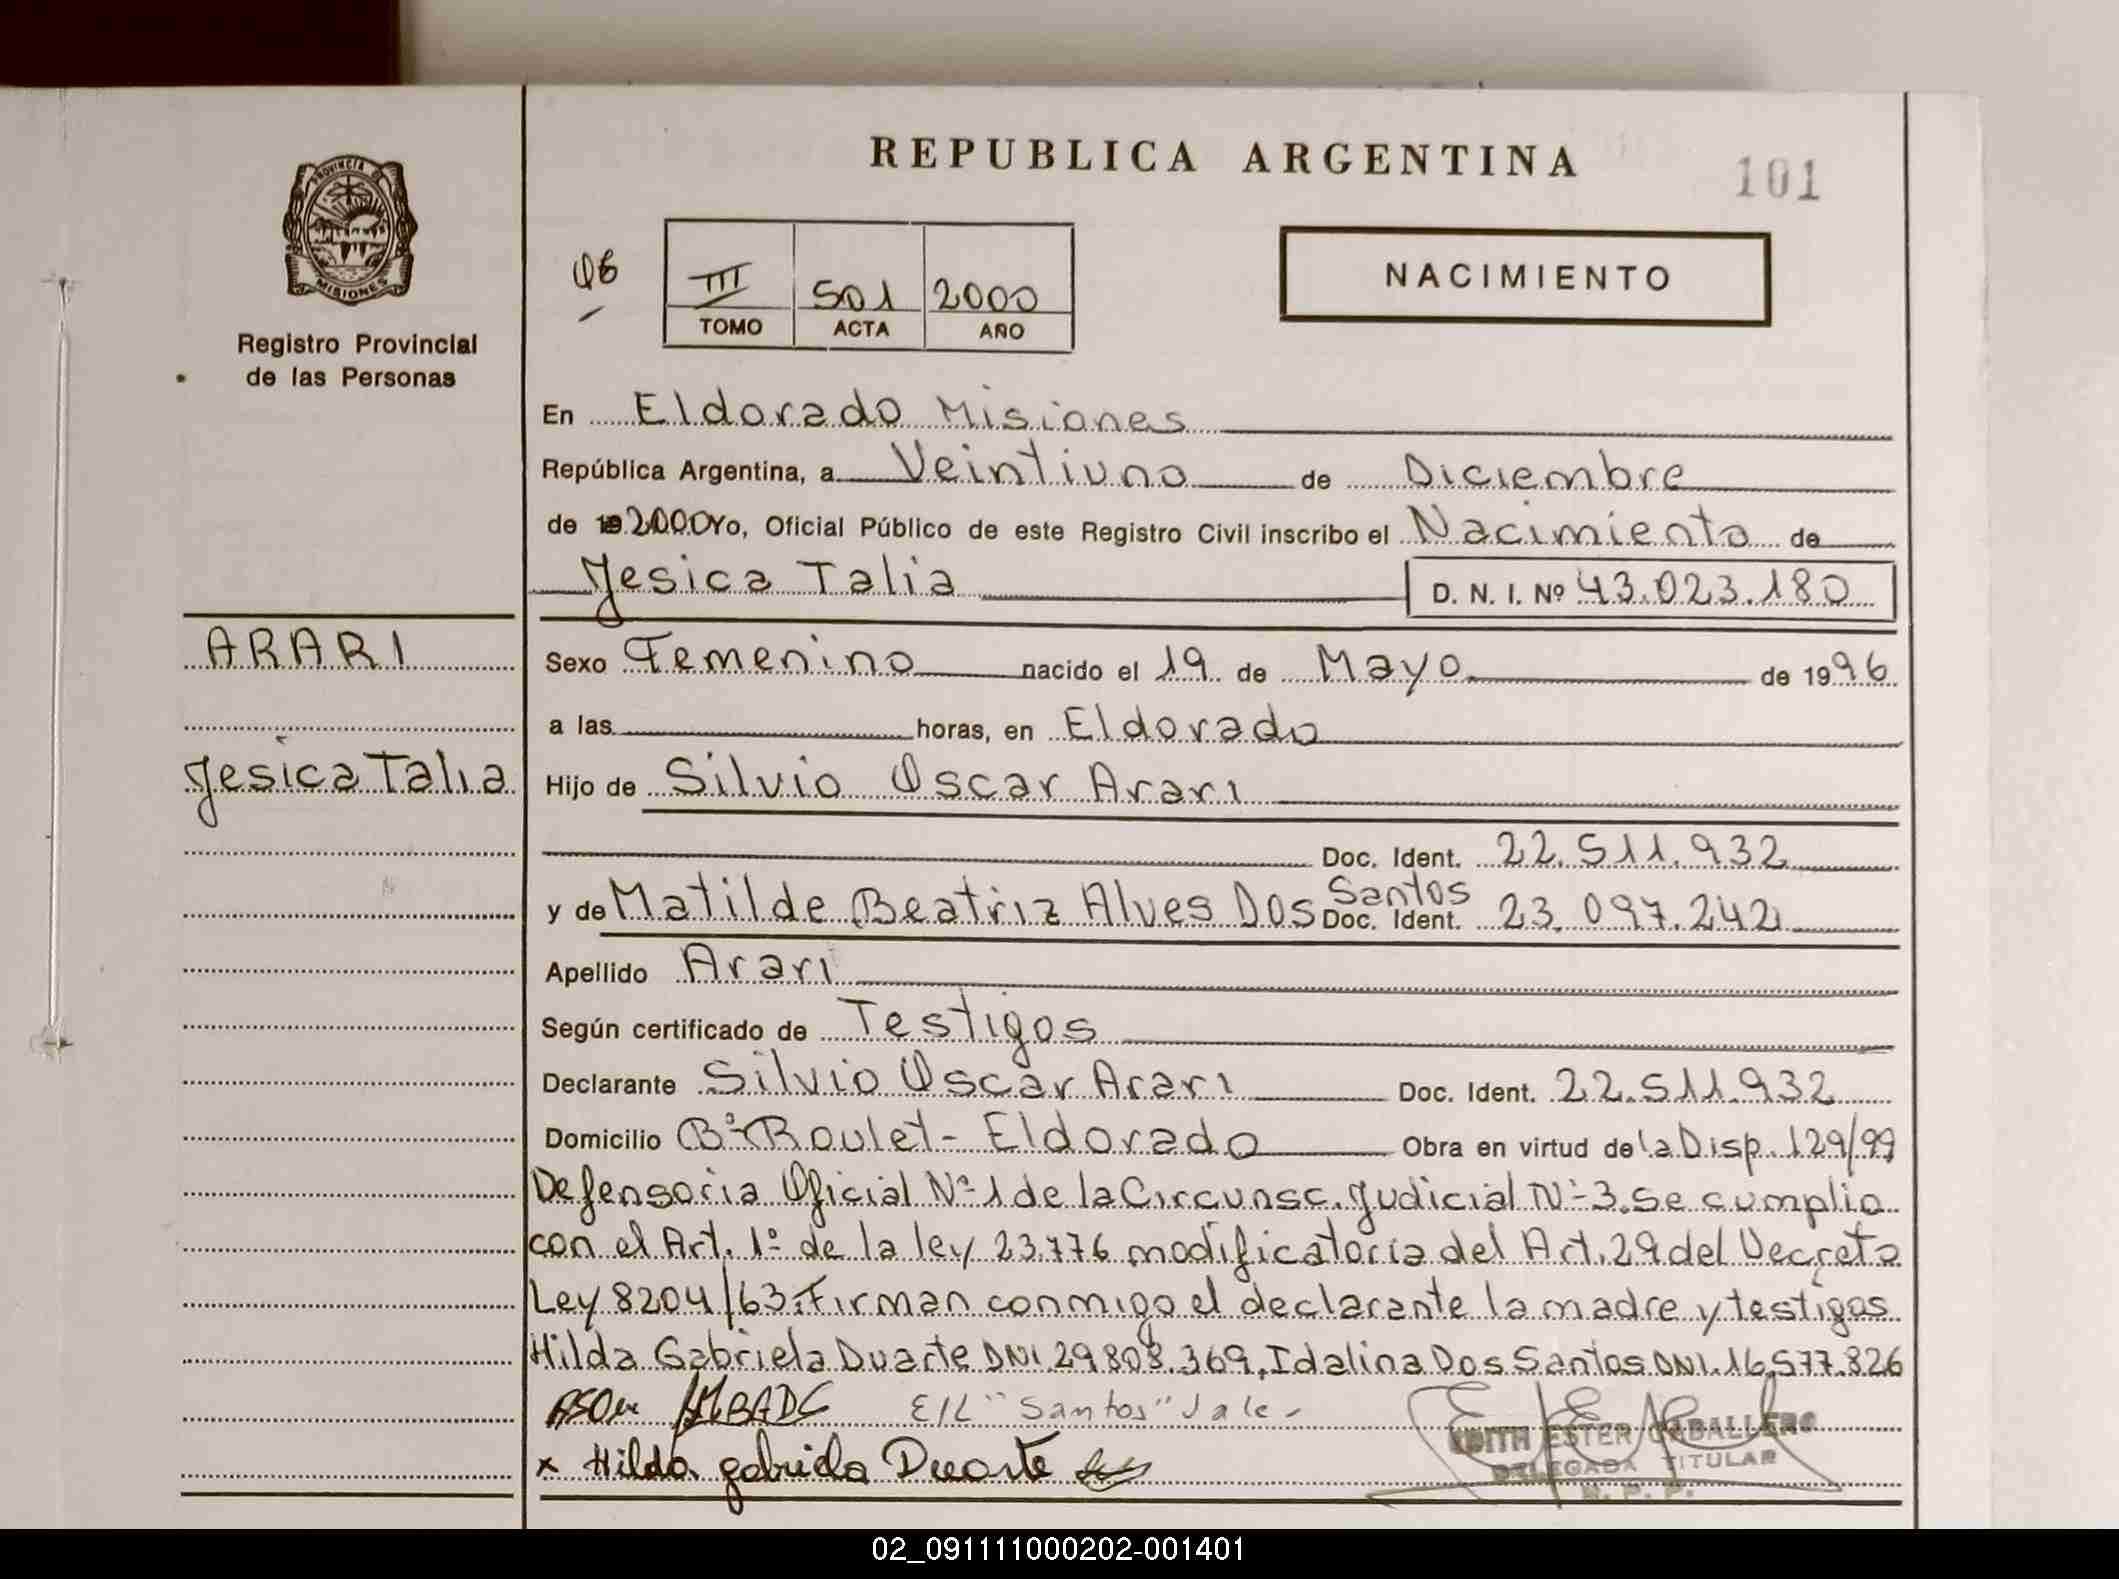 REPUBLICA ARGENTINA
101
PROVINCIA DE
MISIONES
Registro Provincial
de las Personas
III 501 2000
TOMO ACTA AÑO
NACIMIENTO
En Eldorado Misiones
República Argentina, a Veintiuno de Diciembre
de 19 2000 Yo, Oficial Público de este Registro Civil inscribo el Nacimiento de
Jesica Talia D. N. I. Nº 43.023.180
ARARI
Jesica Talia
Sexo Femenino nacido el 19 de Mayo de 1996
a las horas, en Eldorado
Hijo de Silvio Oscar Arari
Doc. Ident. 22.511.932
y de Matilde Beatriz Alves Dos Santos Doc. Ident. 23.097.242
Apellido Arari
Según certificado de Testigos
Declarante Silvio Oscar Arari Doc. Ident. 22.511.932
Domicilio Bº Roulet - Eldorado Obra en virtud de la Disp. 129/99
Defensoria Oficial Nº 1 de la Circunsc. Judicial Nº 3. Se cumplio
con el Art. 1º de la ley 23.776 modificatoria del Art. 29 del Decreto
Ley 8204/63. Firman conmigo el declarante la madre y testigos
Hilda Gabriela Duarte DNI 29.808.369, Idalina Dos Santos DNI. 16.577.826
E/L "Santos" Vale -
x Hilda gabriela Duarte
EDITH ESTER CABALLERO
DELEGADA TITULAR
R. P. P.
02_091111000202-001401